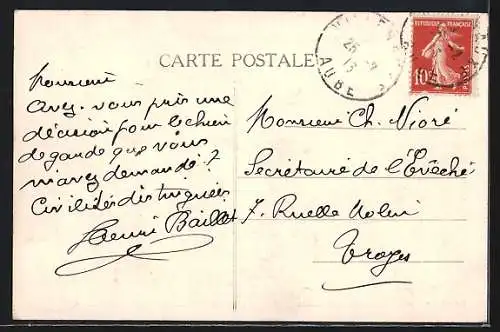 CARTE POSTALE
REPUBLIQUE FRANÇAISE
10c
POSTES
AUBE
Monsieur
Avez-vous pris une
décision pour le chien
de garde que vous
m'avez demandé ?
Civilités distinguées
Henri Baillot
Monsieur Ch. Nioré
Secrétaire de l'Evêché
7. Ruelle
Troyes